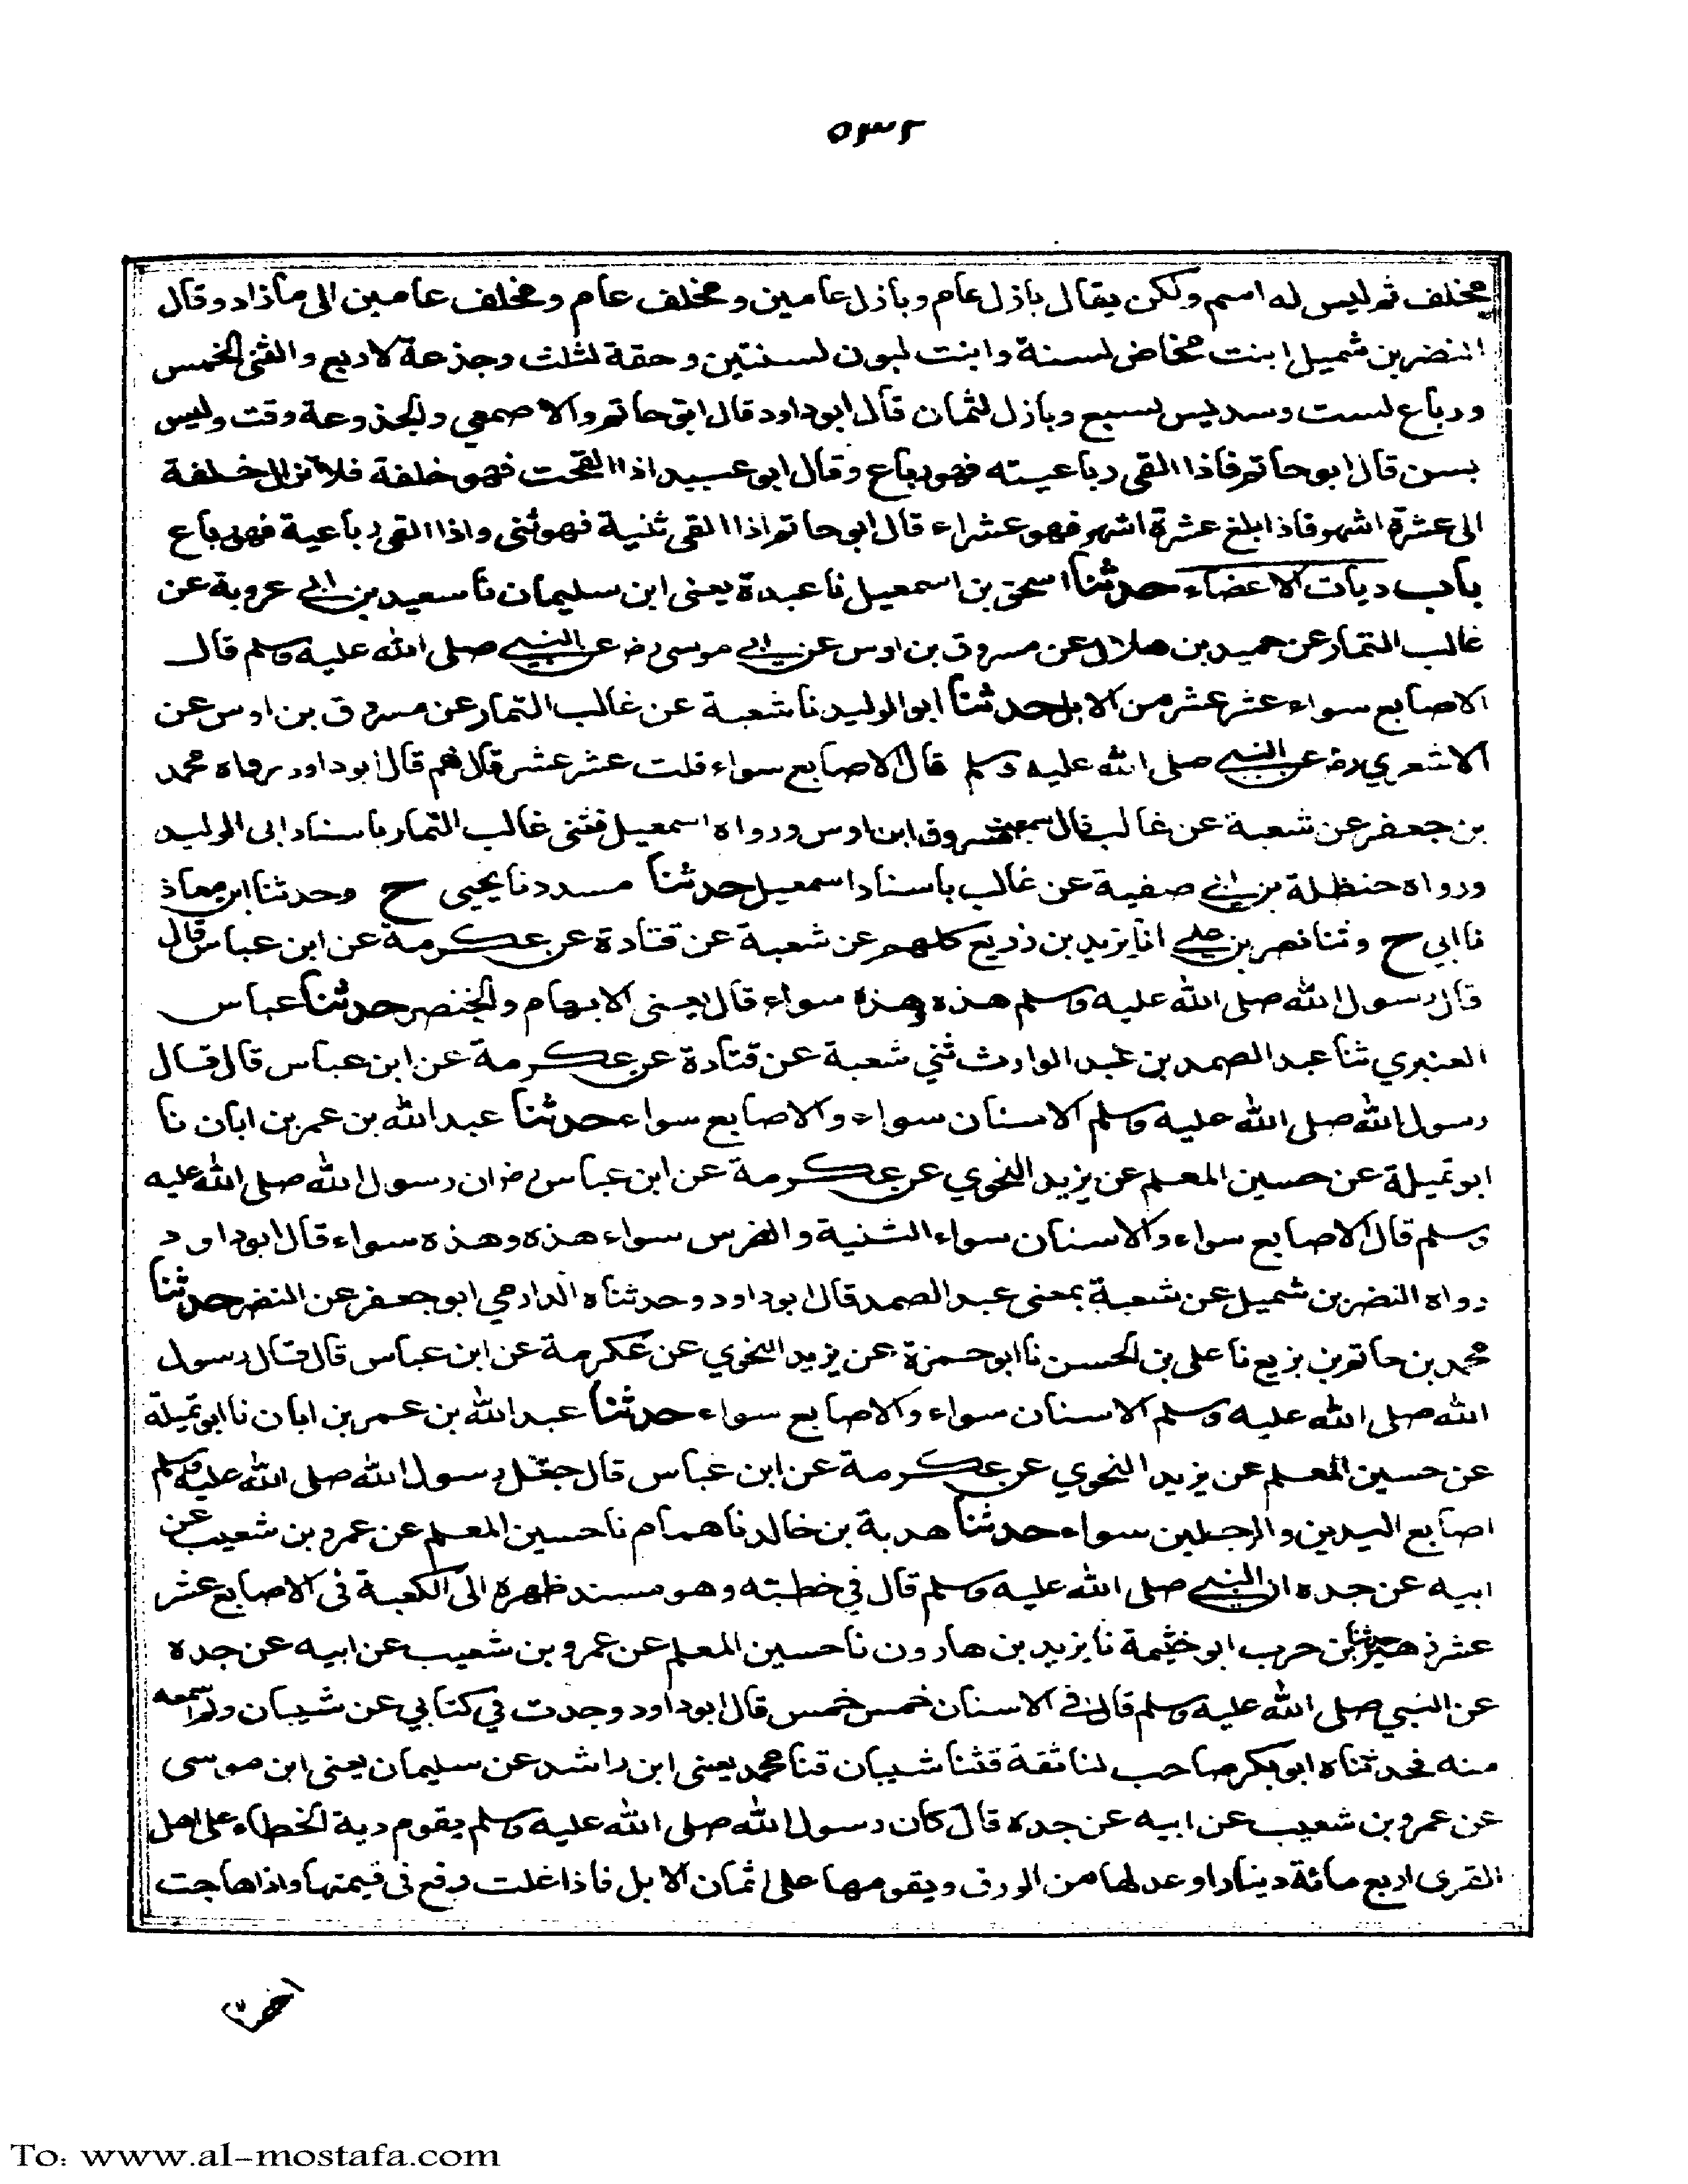 ٥٣٢
مخلف ثم ليس له اسم ولكن يقال بازل عام وبازل عامين ومخلف عام ومخلف عامين الى مازاد وقال
النضر بن شميل ابنت مخاض لسنة وابنت لبون لسنتين وحقة لثلث وجذعة لاربع والثنى لخمس
ورباع لست وسديس لسبع وبازل لثمان قال ابوداود قال ابوحاتم والاصمعي والجذوعة وقت وليس
بسن قال ابوحاتم فاذا القى رباعيته فهو رباع وقال ابو عبيد اذا القحت فهو خلفة فلا تزال خلفة
الى عشرة اشهر فاذا بلغ عشرة اشهر فهو عشراء قال ابوحاتم اذا القى ثنية فهو ثنى واذا القى رباعية فهو رباع
باب ديات الاعضاء حدثنا اسحق بن اسمعيل نا عبدة يعنى ابن سليمان نا سعيد بن ابي عروبة عن
غالب التمار عن حميد بن هلال عن مسروق بن اوس عن ابي موسى رض عن النبي صلى الله عليه وسلم قال
الاصابع سواء عشر عشر من الابل حدثنا ابو الوليد نا شعبة عن غالب التمار عن مسروق بن اوس عن
الاشعري رض عن النبي صلى الله عليه وسلم قال الاصابع سواء قلت عشر عشر قال نعم قال ابوداود رواه محمد
بن جعفر عن شعبة عن غالب قال سمعت مسروق ابن اوس ورواه اسمعيل فثنى غالب التمار باسناد ابى الوليد
ورواه حنظلة بن ابي صفية عن غالب باسناد اسمعيل حدثنا مسدد نا يحيى ح وحدثنا ابن معاذ
نا ابي ح وثنا نصر بن علي انا يزيد بن زريع كلهم عن شعبة عن قتادة عن عكرمة عن ابن عباس قال
قال رسول الله صلى الله عليه وسلم هذه وهذه سواء قال يعنى الابهام والخنصر حدثنا عباس
العنبري ثنا عبد الصمد بن عبد الوارث ثني شعبة عن قتادة عن عكرمة عن ابن عباس قال قال
رسول الله صلى الله عليه وسلم الاسنان سواء والاصابع سواء حدثنا عبد الله بن عمر بن ابان نا
ابو تميلة عن حسين المعلم عن يزيد النحوي عن عكرمة عن ابن عباس رض ان رسول الله صلى الله عليه
وسلم قال الاصابع سواء والاسنان سواء الثنية والضرس سواء هذه وهذه سواء قال ابوداود
رواه النضر بن شميل عن شعبة بمعنى عبد الصمد قال ابوداود وحدثناه الدارمي ابو جعفر عن النضر حدثنا
محمد بن حاتم بن بزيع نا على بن الحسن نا ابو حمزة عن يزيد النحوي عن عكرمة عن ابن عباس قال قال رسول
الله صلى الله عليه وسلم الاسنان سواء والاصابع سواء حدثنا عبد الله بن عمر بن ابان نا ابو تميلة
عن حسين المعلم عن يزيد النحوي عن عكرمة عن ابن عباس قال جعل رسول الله صلى الله عليه وسلم
اصابع اليدين والرجلين سواء حدثنا هدبة بن خالد نا همام نا حسين المعلم عن عمرو بن شعيب عن
ابيه عن جده ان النبي صلى الله عليه وسلم قال في خطبته وهو مسند ظهره الى الكعبة في الاصابع عشر
عشر حدثنا زهير بن حرب ابو خيثمة نا يزيد بن هارون نا حسين المعلم عن عمرو بن شعيب عن ابيه عن جده
عن النبي صلى الله عليه وسلم قال في الاسنان خمس خمس قال ابوداود وجدت في كتابي عن شيبان ولم اسمعه
منه فحدثناه ابو بكر صاحب لنا ثقة قثنا شيبان قثنا محمد يعنى ابن راشد عن سليمان يعنى ابن موسى
عن عمرو بن شعيب عن ابيه عن جده قال كان رسول الله صلى الله عليه وسلم يقوم دية الخطاء على اهل
القرى اربع مائة دينار او عدلها من الورق ويقومها على اثمان الابل فاذا غلت رفع في قيمتها واذا هاجت
To: www.al-mostafa.com